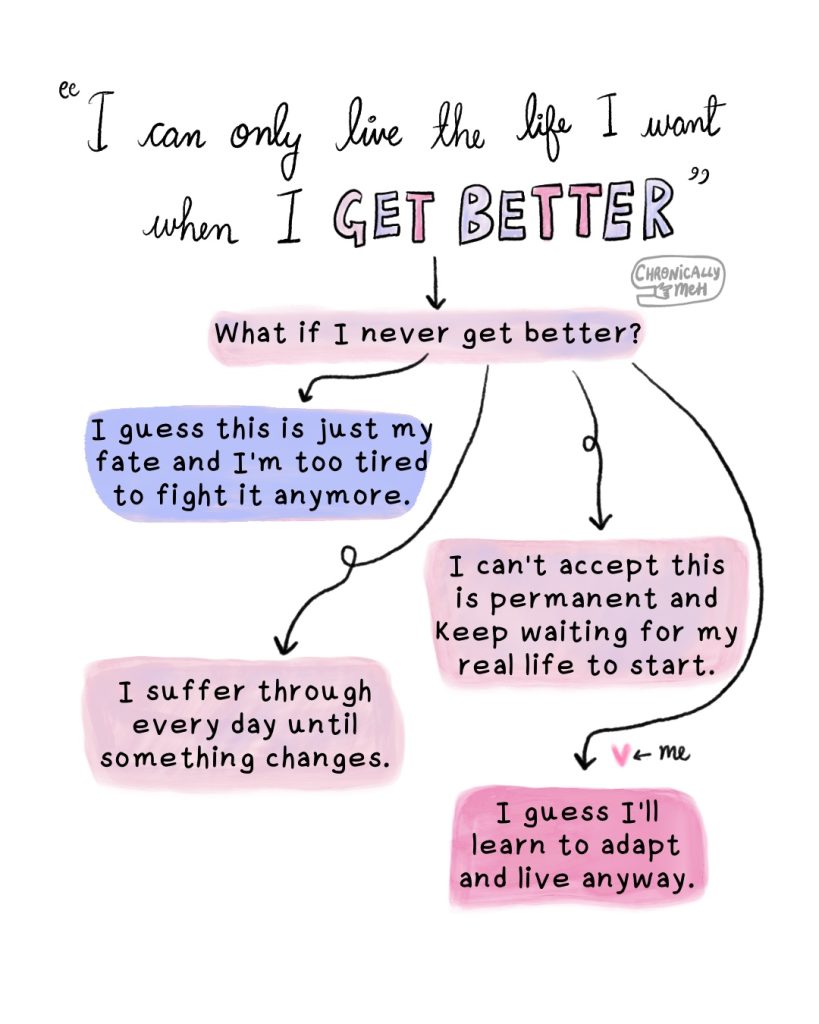 "I can only live the life I want
when I GET BETTER"
CHRONICALLY
MEH
What if I never get better?
I guess this is just my
fate and I'm too tired
to fight it anymore.
I can't accept this
is permanent and
Keep waiting for my
real life to start.
I suffer through
every day until
something changes.
me
I guess I'll
learn to adapt
and live anyway.